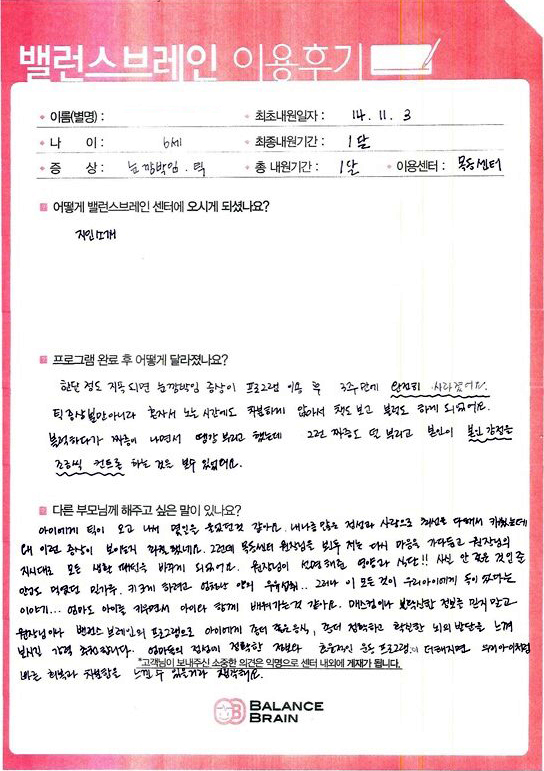 밸런스브레인 이용후기
이름(별명) : 최초내원일자 : 14. 11. 3
나 이 : 6세 최종내원기간 : 1달
증 상 : 눈깜박임. 틱 총 내원기간 : 1달 이용센터 : 목동센터
어떻게 밸런스브레인 센터에 오시게 되셨나요?
지인소개
프로그램 완료 후 어떻게 달라졌나요?
한달 정도 지속되면 눈깜박임 증상이 프로그램 이용 후 3주만에 완전히 사라졌어요.
틱증상 뿐만아니라 혼자서 노는 시간에도 차분하게 앉아서 책도 보고 블럭도 하게 되었어요.
블럭하다가 짜증이 나면서 땡깡 부리고 했는데 그런 짜증도 덜 부리고 본인이 본인 감정을
조금씩 컨트롤 하는 것을 보수 있었어요.
다른 부모님께 해주고 싶은 말이 있나요?
아이에게 틱이 오고 나서 몇일을 울었던것 같아요. 내나름 많은 정성과 사랑으로 최선을 다해서 키웠는데
왜 이런 증상이 보이는지 했네요. 그런데 목동센터 원장님을 뵌후 저는 다시 마음을 가다듬고 원장님의
지시대로 모든 생활 패턴을 바꾸게 되었어요. 원장님이 설명해준 영양과 식단!! 사실 안 좋은 것인줄
만 알았던 밀가루. 키크게 하려고 엄청난 양의 우유섭취.. 그러나 이 모든것이 우리아이에게 독이 있다는
이야기... 엄마도 아이를 키우면서 아이와 함께 배워가는것 같아요. 매스컴이나 정보를 믿지 말고
원장님이나 밸런스 브레인의 프로그램으로 아이에게 좀더 깊은음식, 좀더 정확하고 확실한 뇌의 발달을 느껴
보시길 강력 추천합니다. 엄마들의 정성이 정확한 정보와 효율적인 운동 프로그램이 더해지면 우리아이처럼
빠른 회복과 차분함을 느낄 수 있을거라 생각해요.
*고객님이 보내주신 소중한 의견은 익명으로 센터 내외에 게재가 됩니다.
BALANCE
BRAIN